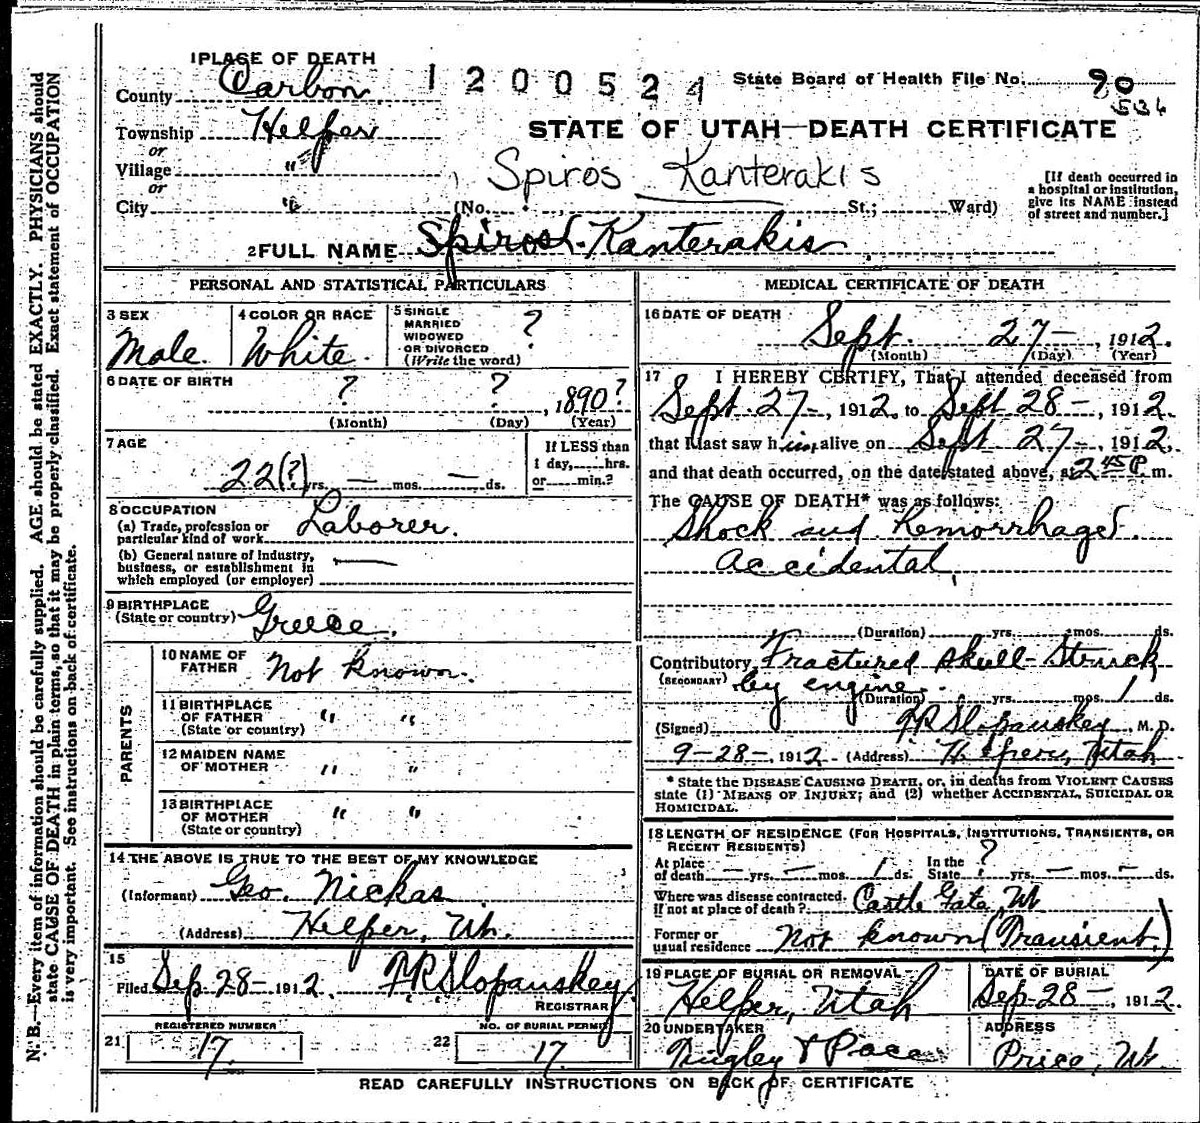 1 PLACE OF DEATH
County Carbon
1200524
State Board of Health File No. 90
536
Township Helper
or
Village "
or
City "
STATE OF UTAH—DEATH CERTIFICATE
Spiros Kanterakis
(No. St.; Ward)
[If death occurred in
a hospital or institution,
give its NAME instead
of street and number.]
2 FULL NAME Spiros Kanterakis
PERSONAL AND STATISTICAL PARTICULARS
3 SEX
Male.
4 COLOR OR RACE
White.
5 SINGLE
MARRIED
WIDOWED
OR DIVORCED
(Write the word)
?
6 DATE OF BIRTH
? ? , 1890?
(Month) (Day) (Year)
7 AGE
22(?) yrs. — mos. — ds.
If LESS than
1 day,......hrs.
or......min.?
8 OCCUPATION
(a) Trade, profession or
particular kind of work Laborer.
(b) General nature of industry,
business, or establishment in
which employed (or employer) —
9 BIRTHPLACE
(State or country) Greece.
PARENTS
10 NAME OF
FATHER Not known.
11 BIRTHPLACE
OF FATHER " "
(State or country)
12 MAIDEN NAME
OF MOTHER " "
13 BIRTHPLACE
OF MOTHER " "
(State or country)
14 THE ABOVE IS TRUE TO THE BEST OF MY KNOWLEDGE
(Informant) Geo. Nickas
(Address) Helper, Ut.
15
Filed Sep. 28—, 1912. F R Slopanskey
REGISTRAR
REGISTERED NUMBER
21 17.
NO. OF BURIAL PERMIT
22 17.
MEDICAL CERTIFICATE OF DEATH
16 DATE OF DEATH
Sept. 27—, 1912.
(Month) (Day) (Year)
17 I HEREBY CERTIFY, That I attended deceased from
Sept. 27—, 1912. to Sept 28—, 1912.
that I last saw him alive on Sept 27—, 1912.
and that death occurred, on the date stated above, at 2 45 P. m.
The CAUSE OF DEATH* was as follows:
Shock and Hemorrhage.
Accidental.
(Duration) yrs. mos. ds.
Contributory Fractured skull—Struck
(SECONDARY) by engine.
(Duration) yrs. mos. 1 ds.
(Signed) F R Slopanskey, M. D.
9-28-, 1912. (Address) Helper, Utah
* State the DISEASE CAUSING DEATH, or, in deaths from VIOLENT CAUSES
state (1) MEANS OF INJURY; and (2) whether ACCIDENTAL, SUICIDAL OR
HOMICIDAL.
18 LENGTH OF RESIDENCE (FOR HOSPITALS, INSTITUTIONS, TRANSIENTS, OR
RECENT RESIDENTS)
At place
of death — yrs. — mos. 1 ds.
In the
State ? yrs. — mos. — ds.
Where was disease contracted,
If not at place of death? Castle Gate, Ut
Former or
usual residence Not known (Transient.)
19 PLACE OF BURIAL OR REMOVAL
Helper, Utah
DATE OF BURIAL
Sep. 28—, 1912.
20 UNDERTAKER
Tingley & Pace
ADDRESS
Price, Ut.
READ CAREFULLY INSTRUCTIONS ON BACK OF CERTIFICATE
N. B.—Every item of information should be carefully supplied. AGE should be stated EXACTLY. PHYSICIANS should
state CAUSE OF DEATH in plain terms, so that it may be properly classified. Exact statement of OCCUPATION
is very important. See instructions on back of certificate.